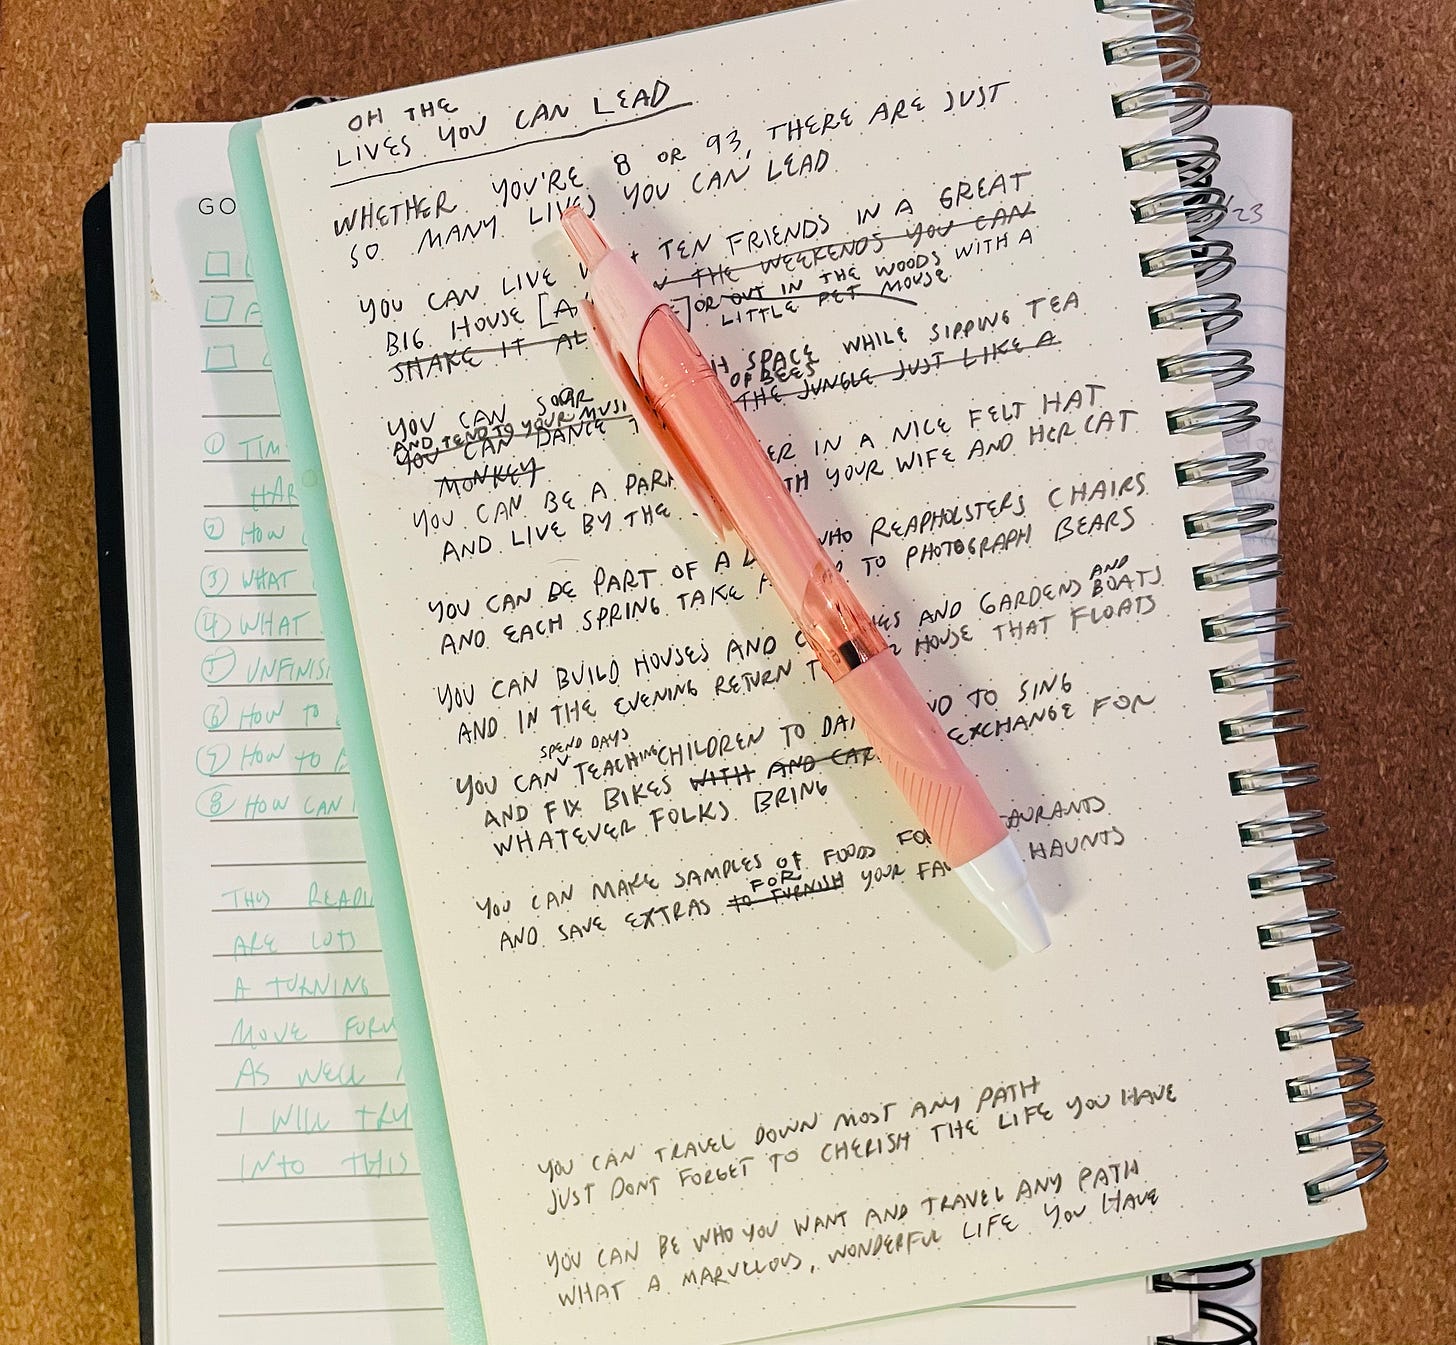 OH THE
LIVES YOU CAN LEAD
WHETHER YOU'RE 8 OR 93, THERE ARE JUST
SO MANY LIVES YOU CAN LEAD
YOU CAN LIVE TEN FRIENDS IN A GREAT
BIG HOUSE [A ] OR OUT IN THE WOODS WITH A
THE WEEKENDS YOU CAN
LITTLE PET MOUSE
SHAKE IT AL
YOU CAN SOAR SPACE WHILE SIPPING TEA
AND TEND TO YOUR MUSI OF BEES
YOU CAN DANCE THE JUNGLE JUST LIKE A
MONKEY
YOU CAN BE A PARK ER IN A NICE FELT HAT
AND LIVE BY THE TH YOUR WIFE AND HER CAT
YOU CAN BE PART OF A WHO REAPHOLSTERS CHAIRS
AND EACH SPRING TAKE TO PHOTOGRAPH BEARS
YOU CAN BUILD HOUSES AND AND GARDENS AND BOATS
AND IN THE EVENING RETURN T HOUSE THAT FLOATS
SPEND DAYS
YOU CAN TEACHING CHILDREN TO DAN ND TO SING
AND FIX BIKES WITH AND CAR EXCHANGE FOR
WHATEVER FOLKS BRING
YOU CAN MAKE SAMPLES OF FOODS FO AURANTS
FOR
AND SAVE EXTRAS TO FURNISH YOUR FA HAUNTS
YOU CAN TRAVEL DOWN MOST ANY PATH
JUST DONT FORGET TO CHERISH THE LIFE YOU HAVE
YOU CAN BE WHO YOU WANT AND TRAVEL ANY PATH
WHAT A MARVELLOUS, WONDERFUL LIFE YOU HAVE
GO
① TIM
HAR
② HOW
③ WHAT
④ WHAT
⑤ UNFINIS
⑥ HOW TO
⑦ HOW TO
⑧ HOW CAN
THIS READI
ARE LOTS
A TURNING
MOVE FORW
AS WELL
I WILL TRY
INTO THIS
/23